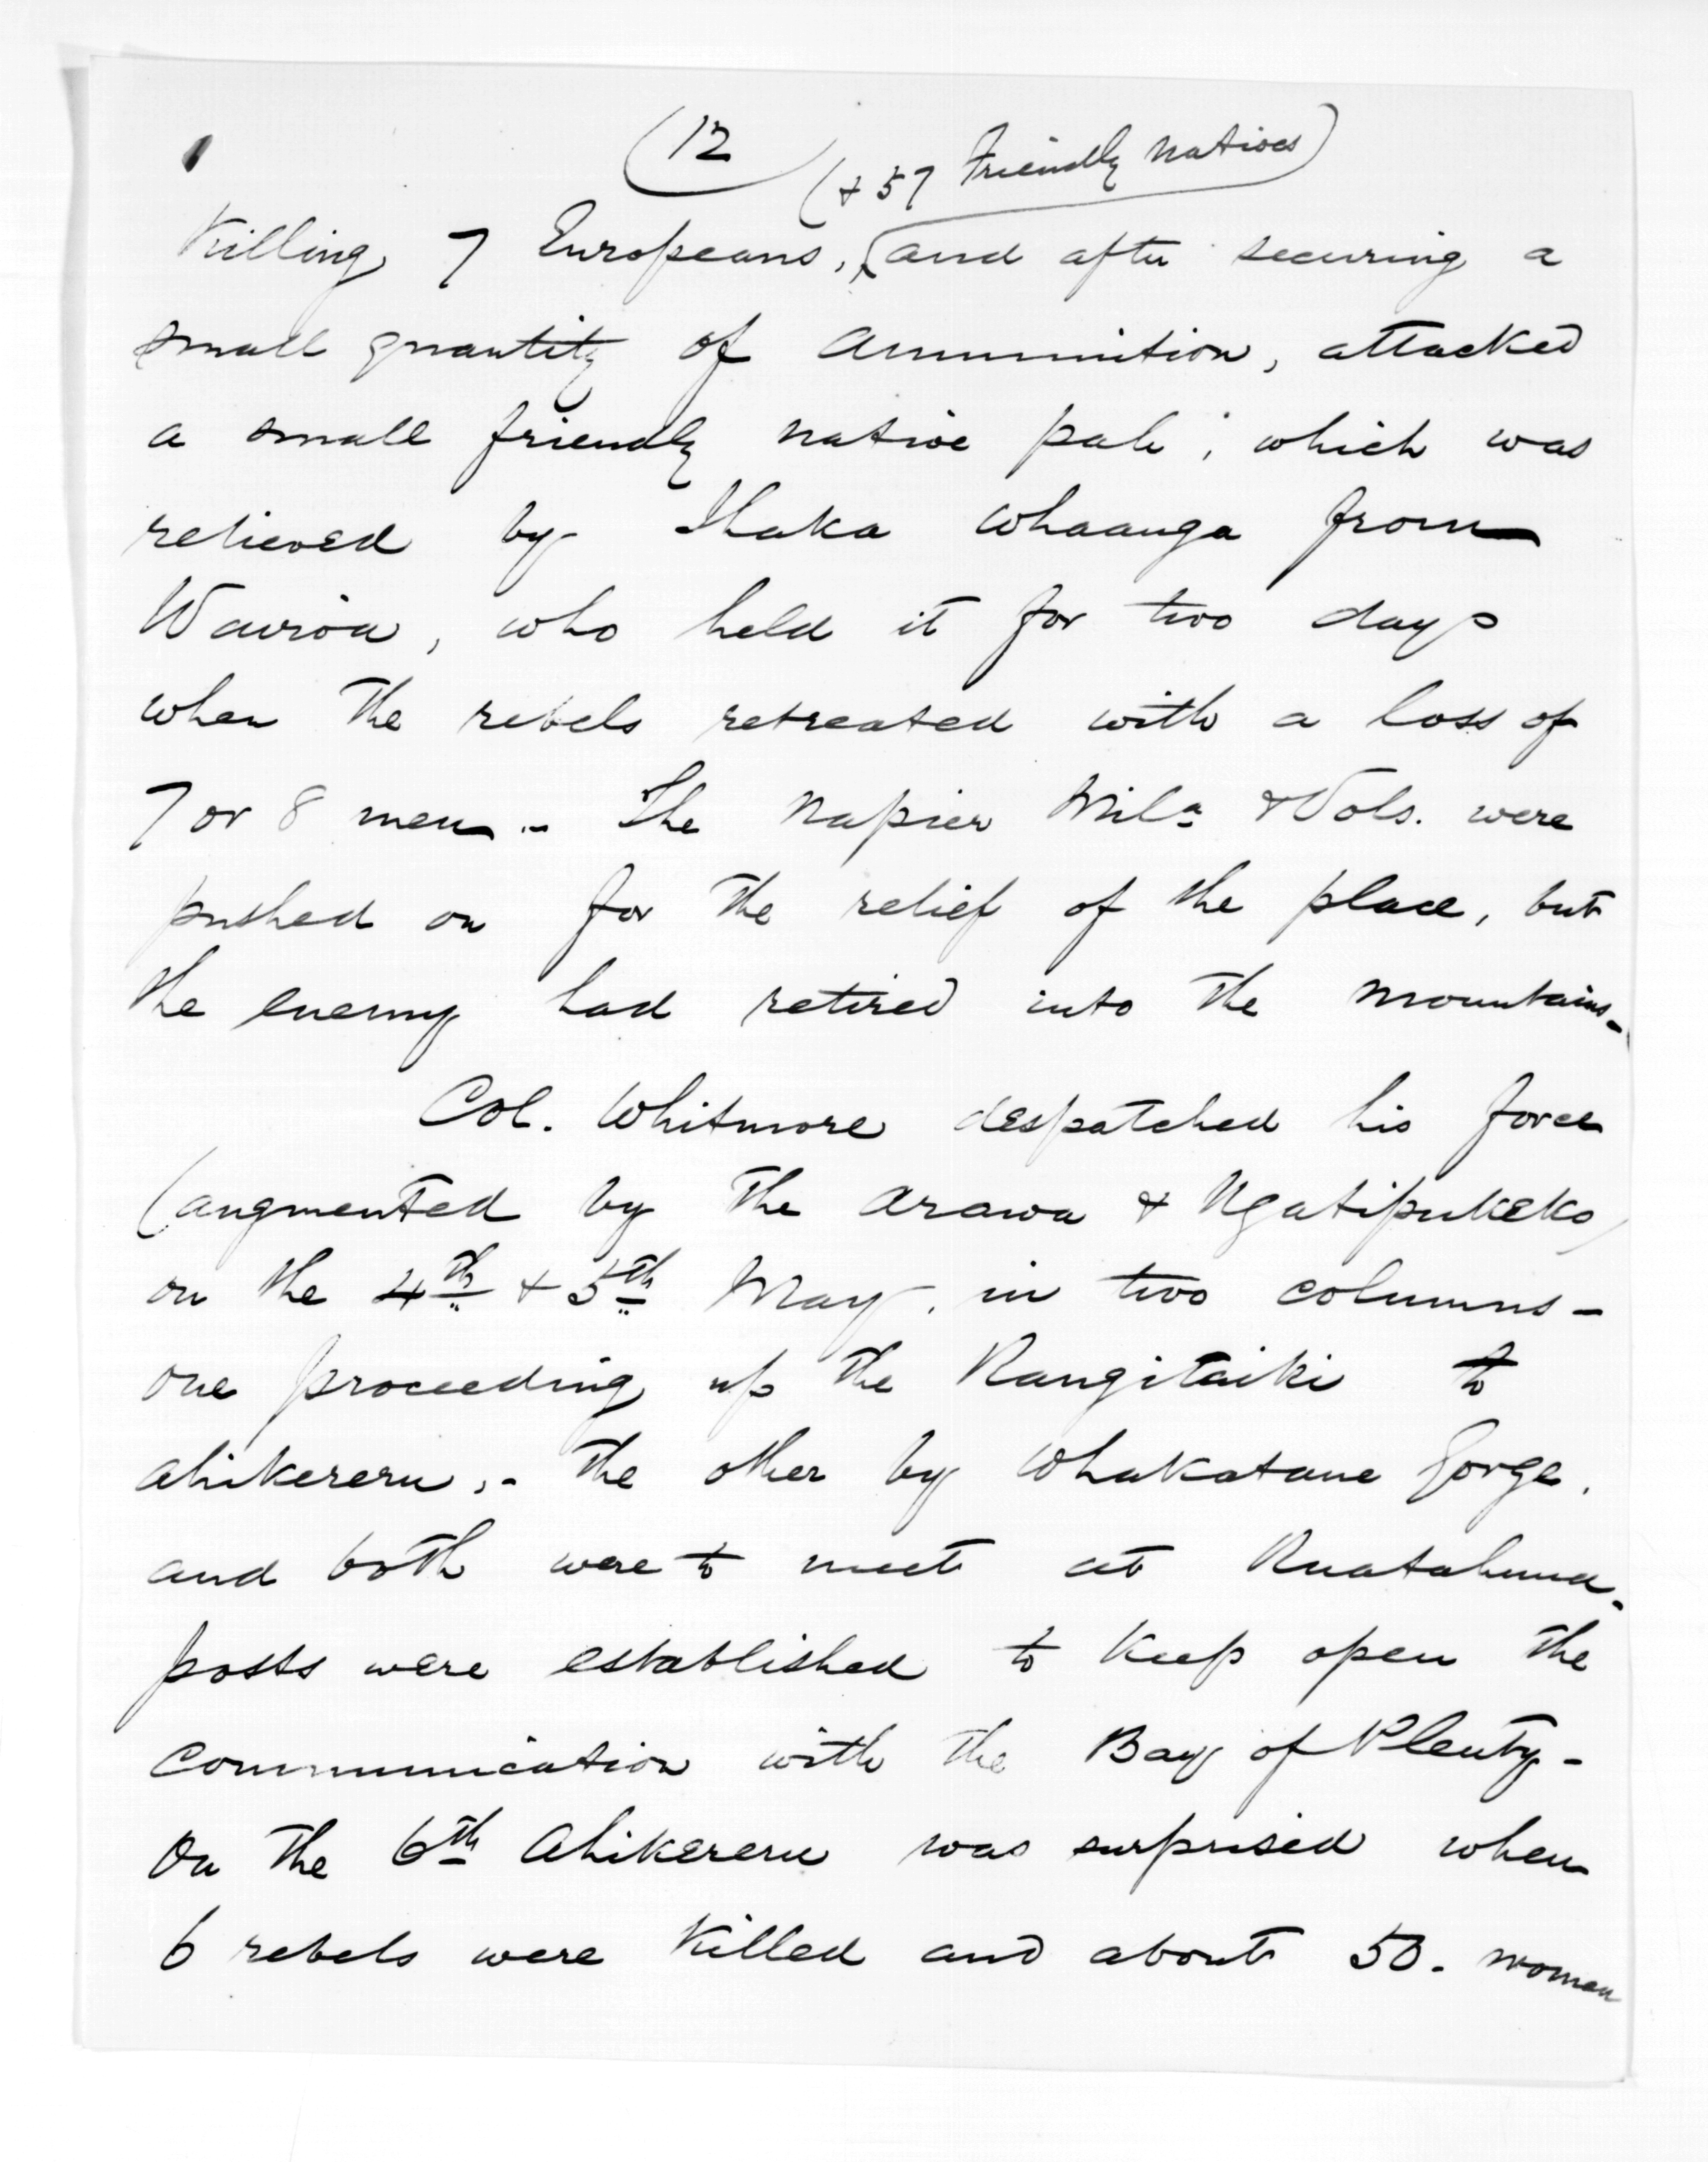 (12
(+ 57 Friendly Natives)
Killing 7 Europeans, and after securing a
small quantity of ammunition, attacked
a small friendly native pah, which was
relieved by Ihaka Whaanga from
Wairoa, who held it for two days
when the rebels retreated with a loss of
7 or 8 men.- The Napier Mila & Vols. were
pushed on for the relief of the place, but
the enemy had retired into the mountains-
Col. Whitmore despatched his force
(augmented by the Arawa & Ngatipukeko)
on the 4th & 5th May, in two columns-
one proceeding up the Rangitaiki to
Ahikereru,- the other by Whakatane Gorge.
and both were to meet at Ruatahuna-
posts were established to keep open the
communication with the Bay of Plenty-
On the 6th Ahikereru was surprised when
6 rebels were killed and about 50. women